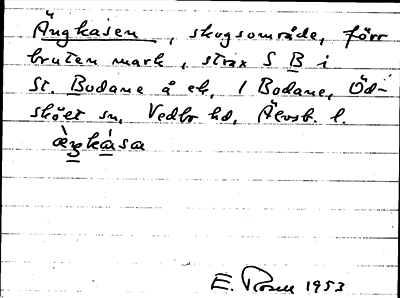 Ängkåsen, skogsområde, förr
bruten mark, strax S B i
St. Bodane å ek. 1 Bodane, Öd-
skölt sn, Vedbo hd, Älvsb. l.
E. Rosell 1953